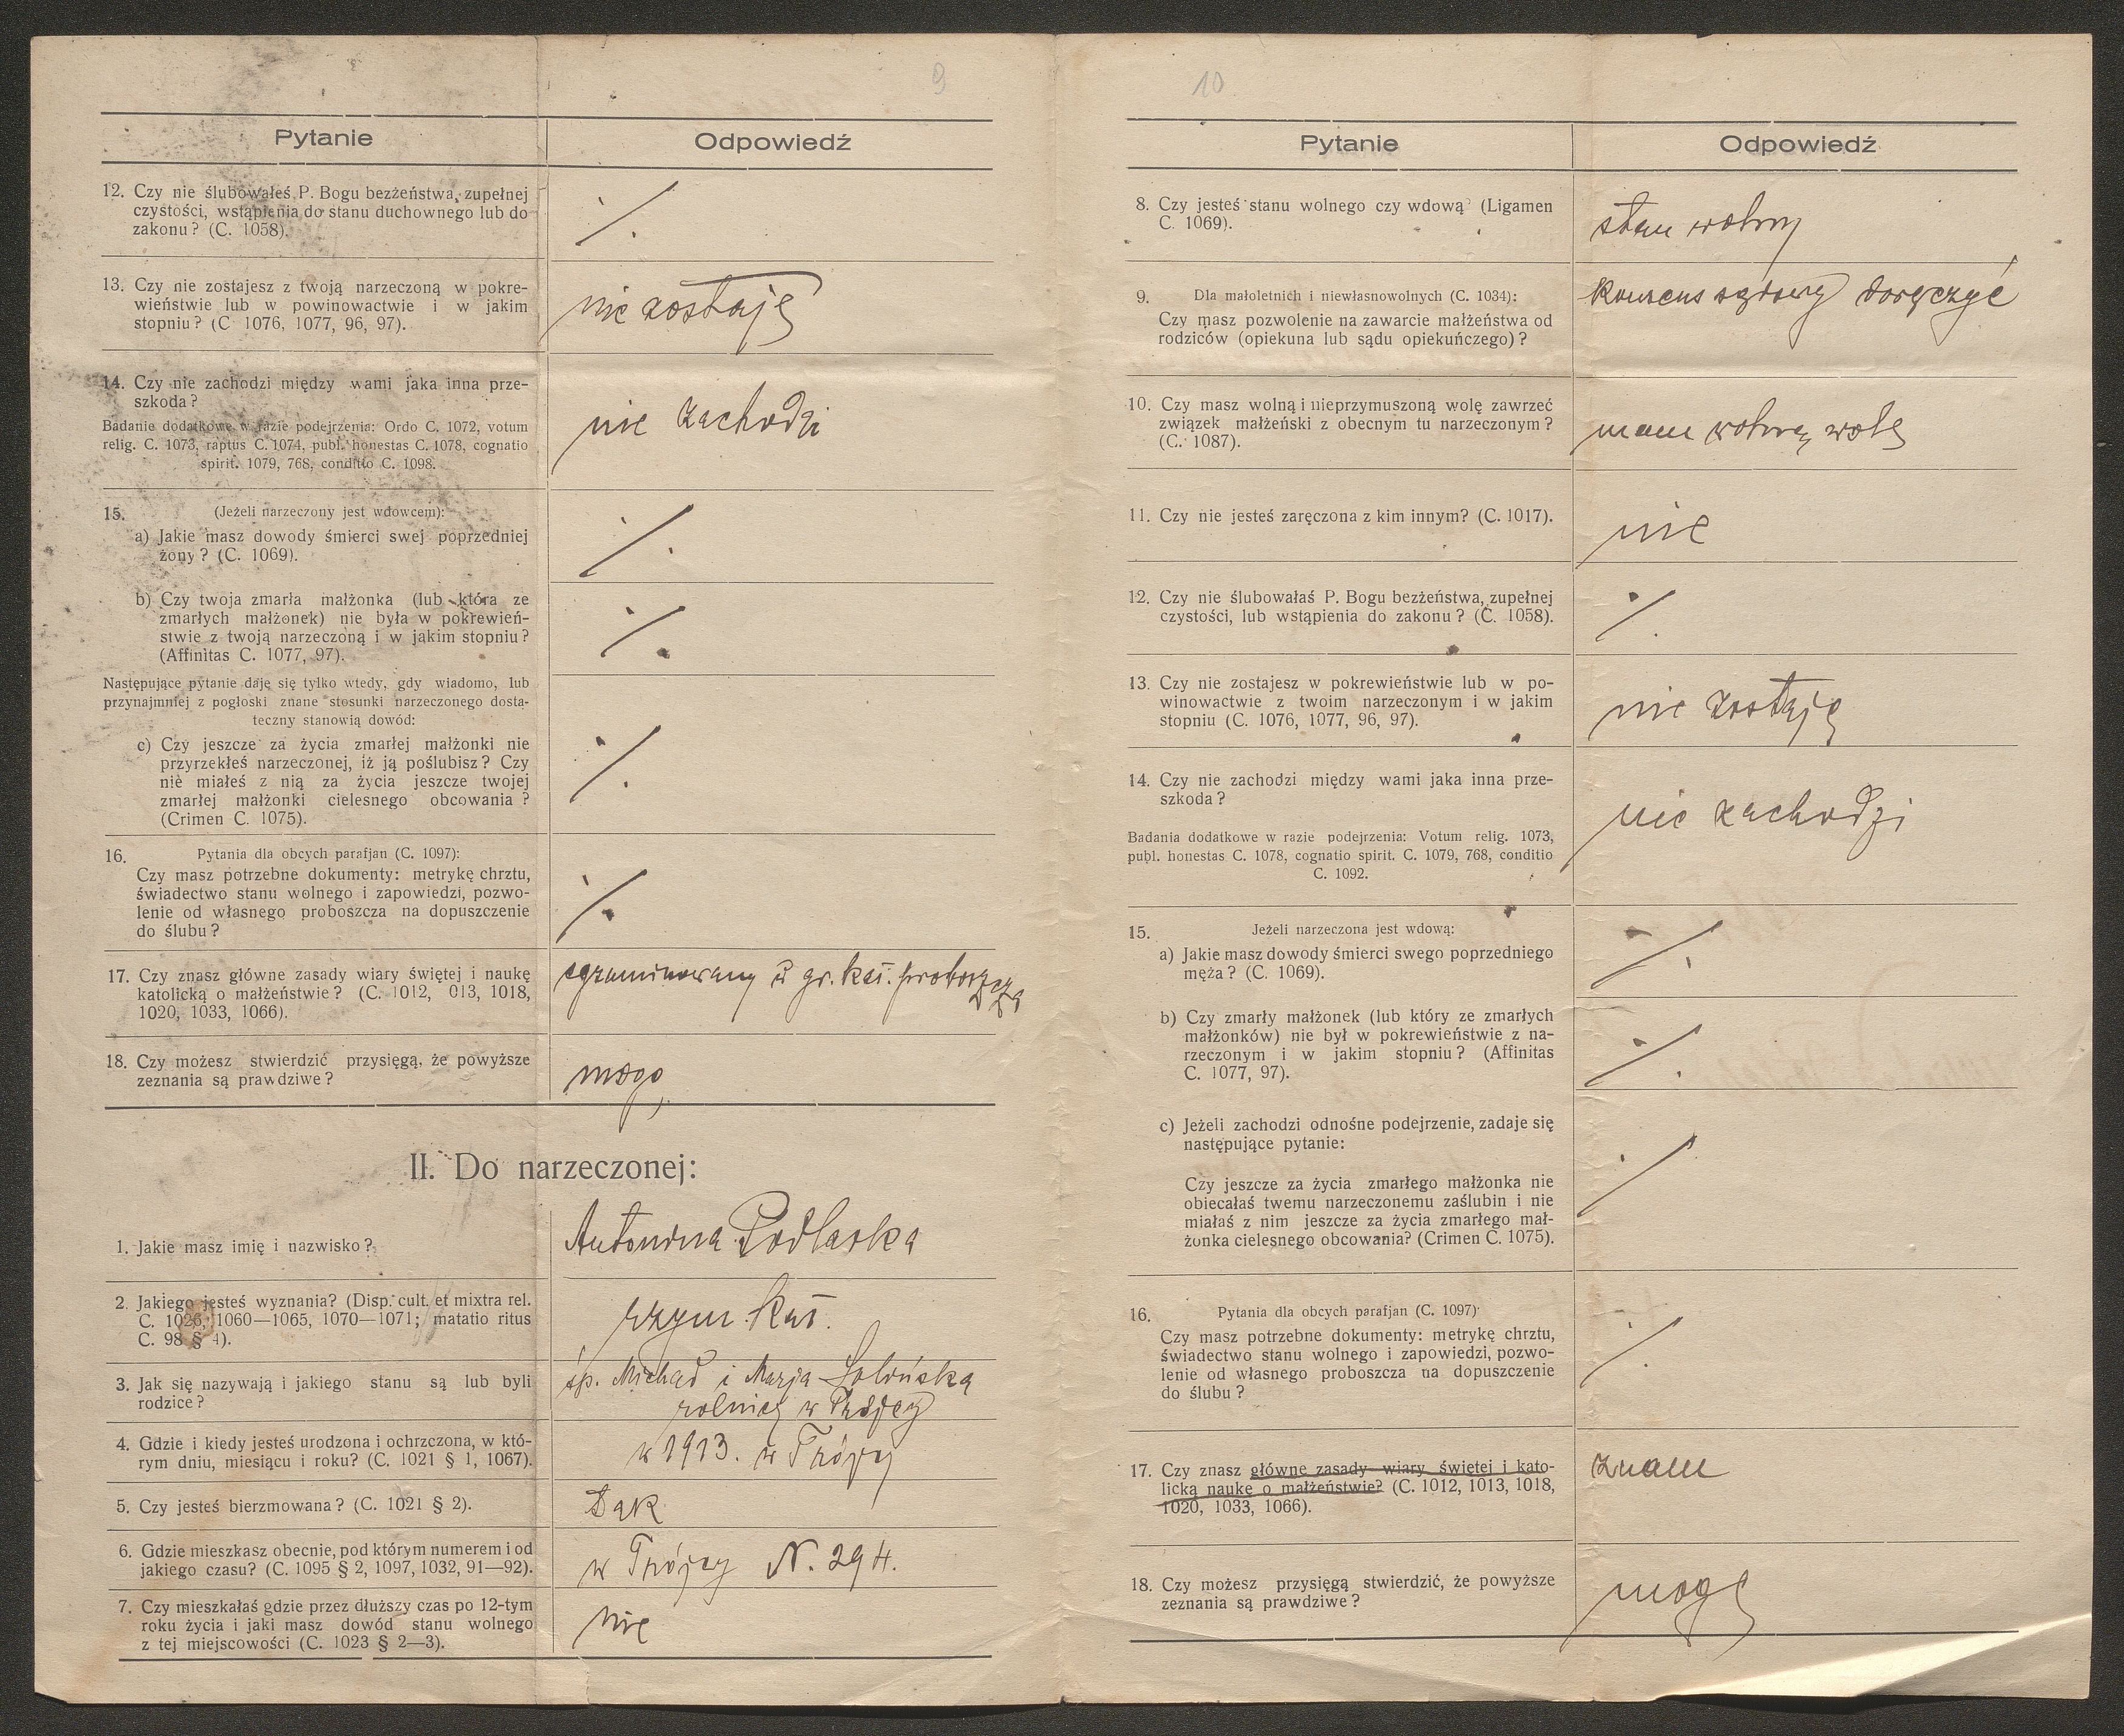 9
Pytanie
Odpowiedź
12. Czy nie ślubowałeś P. Bogu bezżeństwa, zupełnej
czystości, wstąpienia do stanu duchownego lub do
zakonu? (C. 1058).
·/.
13. Czy nie zostajesz z twoją narzeczoną w pokre-
wieństwie lub w powinowactwie i w jakim
stopniu? (C 1076, 1077, 96, 97).
nie zostaję
14. Czy nie zachodzi między wami jaka inna prze-
szkoda?
Badanie dodatkowe w razie podejrzenia: Ordo C. 1072, votum
relig. C. 1073, raptus C. 1074, publ. honestas C. 1078, cognatio
spirit. 1079, 768, conditio C. 1098.
nie zachodzi
15. (Jeżeli narzeczony jest wdowcem):
a) Jakie masz dowody śmierci swej poprzedniej
żony? (C. 1069).
·/.
b) Czy twoja zmarła małżonka (lub która ze
zmarłych małżonek) nie była w pokrewień-
stwie z twoją narzeczoną i w jakim stopniu?
(Affinitas C. 1077, 97).
·/.
Następujące pytanie daje się tylko wtedy, gdy wiadomo, lub
przynajmniej z pogłoski znane stosunki narzeczonego dosta-
teczny stanowią dowód:
c) Czy jeszcze za życia zmarłej małżonki nie
przyrzekłeś narzeczonej, iż ją poślubisz? Czy
nie miałeś z nią za życia jeszcze twojej
zmarłej małżonki cielesnego obcowania?
(Crimen C. 1075).
·/.
16. Pytania dla obcych parafjan (C. 1097):
Czy masz potrzebne dokumenty: metrykę chrztu,
świadectwo stanu wolnego i zapowiedzi, pozwo-
lenie od własnego proboszcza na dopuszczenie
do ślubu?
·/.
17. Czy znasz główne zasady wiary świętej i naukę
katolicką o małżeństwie? (C. 1012, 013, 1018,
1020, 1033, 1066).
egzaminowany u gr. kat. proboszcza
18. Czy możesz stwierdzić przysięgą, że powyższe
zeznania są prawdziwe?
mogę
II. Do narzeczonej:
1. Jakie masz imię i nazwisko?
Antonina Podlaska
2. Jakiego jesteś wyznania? (Disp. cult. et mixtra rel.
C. 1026, 1060—1065, 1070—1071; matatio ritus
C. 98 § 4).
rzym. kat.
3. Jak się nazywają i jakiego stanu są lub byli
rodzice?
śp. Michał i Marja
rolnicy w Trójcy
4. Gdzie i kiedy jesteś urodzona i ochrzczona, w któ-
rym dniu, miesiącu i roku? (C. 1021 § 1, 1067).
w 1913. w Trójcy
5. Czy jesteś bierzmowana? (C. 1021 § 2).
Tak
6. Gdzie mieszkasz obecnie, pod którym numerem i od
jakiego czasu? (C. 1095 § 2, 1097, 1032, 91—92).
w Trójcy N. 294.
7. Czy mieszkałaś gdzie przez dłuższy czas po 12-tym
roku życia i jaki masz dowód stanu wolnego
z tej miejscowości (C. 1023 § 2—3).
nie
10
Pytanie
Odpowiedź
8. Czy jesteś stanu wolnego czy wdową? (Ligamen
C. 1069).
stan wolny
9. Dla małoletnich i niewłasnowolnych (C. 1034):
Czy masz pozwolenie na zawarcie małżeństwa od
rodziców (opiekuna lub sądu opiekuńczego)?
konsens sądowy doręczyć
10. Czy masz wolną i nieprzymuszoną wolę zawrzeć
związek małżeński z obecnym tu narzeczonym?
(C. 1087).
mam wolną wolę
11. Czy nie jesteś zaręczona z kim innym? (C. 1017).
nie
12. Czy nie ślubowałaś P. Bogu bezżeństwa, zupełnej
czystości, lub wstąpienia do zakonu? (C. 1058).
·/.
13. Czy nie zostajesz w pokrewieństwie lub w po-
winowactwie z twoim narzeczonym i w jakim
stopniu (C. 1076, 1077, 96, 97).
nie zostaję
14. Czy nie zachodzi między wami jaka inna prze-
szkoda?
Badania dodatkowe w razie podejrzenia: Votum relig. 1073,
publ. honestas C. 1078, cognatio spirit. C. 1079, 768, conditio
C. 1092.
nie zachodzi
15. Jeżeli narzeczona jest wdową:
a) Jakie masz dowody śmierci swego poprzedniego
męża? (C. 1069).
·/.
b) Czy zmarły małżonek (lub który ze zmarłych
małżonków) nie był w pokrewieństwie z na-
rzeczonym i w jakim stopniu? (Affinitas
C. 1077, 97).
·/.
c) Jeżeli zachodzi odnośne podejrzenie, zadaje się
następujące pytanie:
Czy jeszcze za życia zmarłego małżonka nie
obiecałaś twemu narzeczonemu zaślubin i nie
miałaś z nim jeszcze za życia zmarłego mał-
żonka cielesnego obcowania? (Crimen C. 1075).
·/
16. Pytania dla obcych parafjan (C. 1097)
Czy masz potrzebne dokumenty: metrykę chrztu,
świadectwo stanu wolnego i zapowiedzi, pozwo-
lenie od własnego proboszcza na dopuszczenie
do ślubu?
·/.
17. Czy znasz główne zasady wiary świętej i kato-
licką naukę o małżeństwie? (C. 1012, 1013, 1018,
1020, 1033, 1066).
znam
18. Czy możesz przysięgą stwierdzić, że powyższe
zeznania są prawdziwe?
mogę